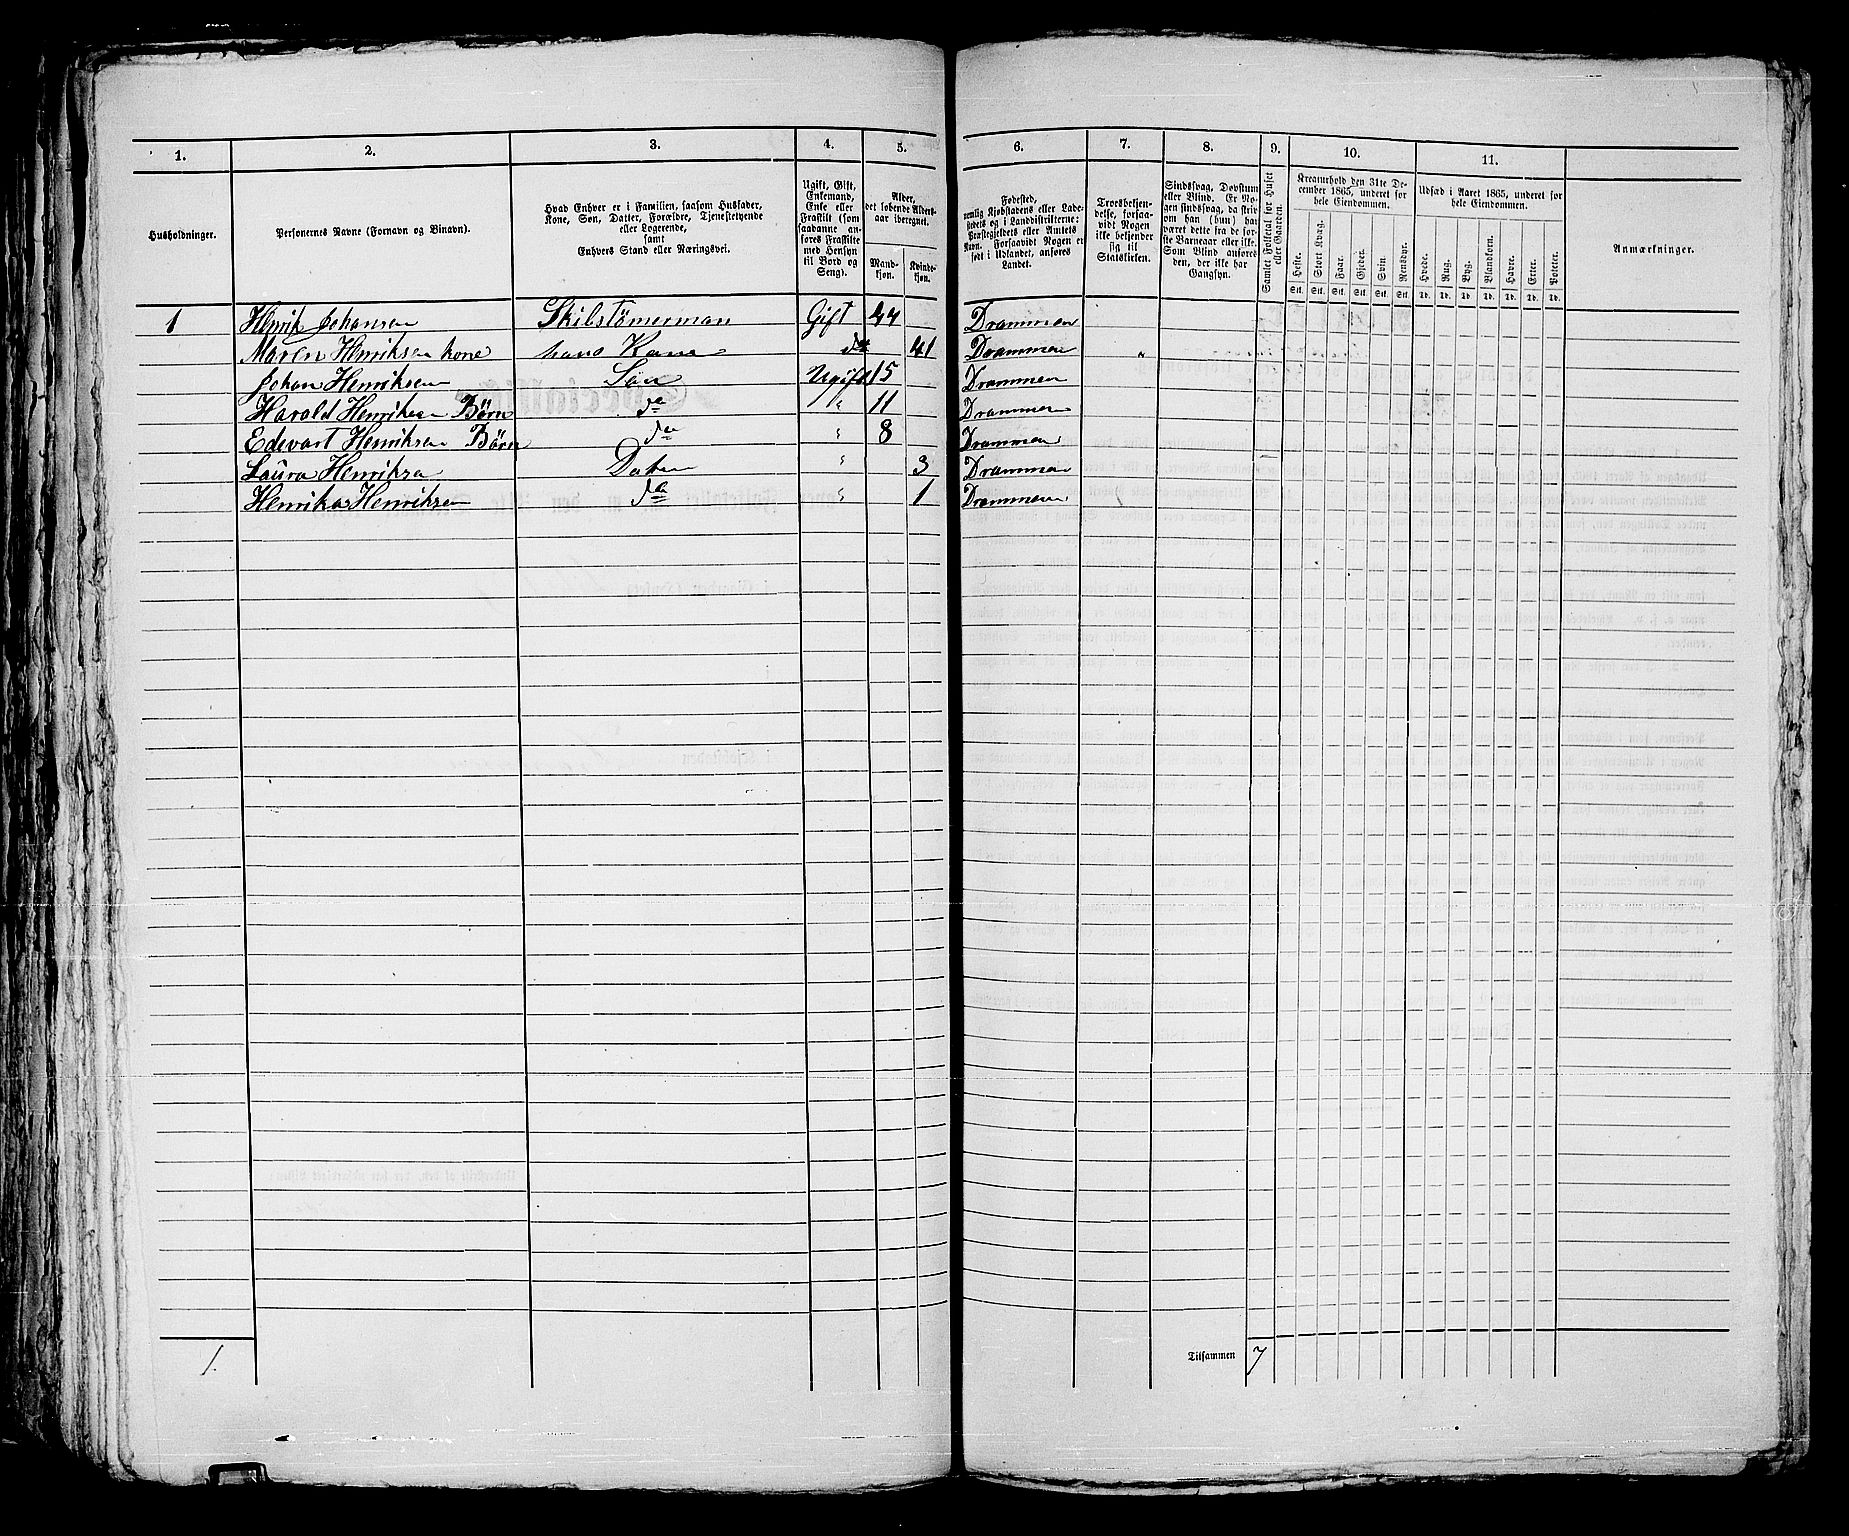 1. 2. 3. 4. 5. 6. 7. 8. 9. 10. 11.
Husholdninger.
Personernes Navne (Fornavn og Binavn).
Hvad Enhver er i Familien, saasom Husfader,
Kone, Søn, Datter, Forældre, Tjenestetyende
eller Logerende,
samt
Enhvers Stand eller Næringsvei.
Ugift, Gift,
Enkemand,
Enke eller
Fraskilt (som
saadanne an-
føres Fraskilte
med Hensyn
til Bord og
Seng).
Alder,
det løbende Alders-
aar iberegnet.
Mand-
kjøn.
Kvinde-
kjøn.
Fødested,
nemlig Kjøbstadens eller Lade-
stedets og i Landdistrikterne:
Præstegjeldets eller Amtets
Navn. Forsaavidt Nogen er
født i Udlandet, anføres
Landet.
Troesbekjen-
delse, forsaa-
vidt Nogen
ikke bekjender
sig til
Statskirken.
Sindssvag, Døvstum
eller Blind. Er No-
gen sindssvag, da skriv
om han (hun) har
været dette fra de før-
ste Barneaar eller ikke.
Som Blind anføres
den, der ikke har
Gangsyn.
Samlet Folketal for Huset
eller Gaarden.
Kreaturhold den 31te De-
cember 1865, underet for
hele Eiendommen.
Heste. Stort Kvæg. Faar. Gjeder. Svin. Rensdyr.
Stk. Stk. Stk. Stk. Stk. Stk.
Udsæd i Aaret 1865, underet for
hele Eiendommen.
Hvede. Rug. Byg. Blandkorn. Havre. Erter. Poteter.
Td. Td. Td. Td. Td. Td. Td.
Anmærkninger.
1 Henrik Johansen Skibstömerman Gift 44 Drammen
Maren Henriksen kone hans Kone do 41 Drammen "
Johan Henriksen Sön Ugift 15 Drammen
Harald Henriksen Börn do " 11 Drammen
Edevart Henriksen Börn do " 8 Drammen
Laura Henriksen Daten " 3 Drammen
Henrika Henriksen do " 1 Drammen
1. Tilsammen 7